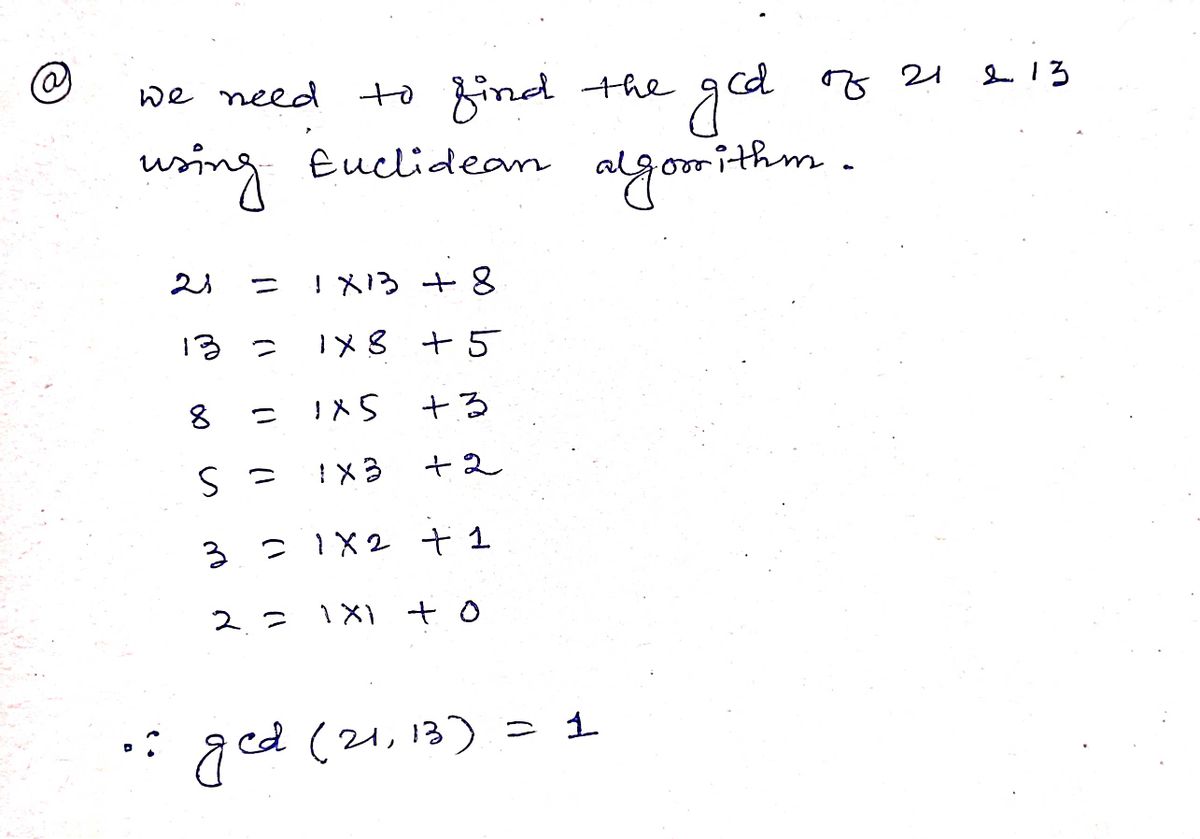 @ we need to find the gcd of 21 & 13
using Euclidean algorithm.
21 = 1×13 + 8
13 = 1×8 + 5
8 = 1×5 + 3
5 = 1×3 + 2
3 = 1×2 + 1
2 = 1×1 + 0
∴ gcd (21, 13) = 1